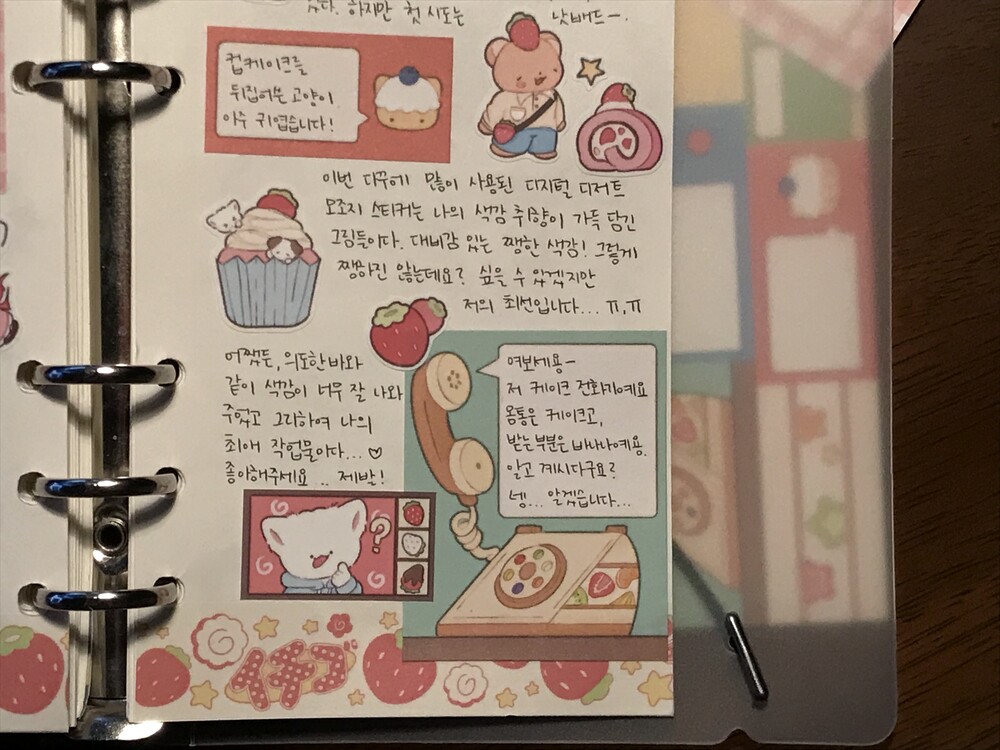 하지만 첫 시도는 낫배드-.
컵케이크를
뒤집어쓴 고양이.
아주 귀엽습니다!
이번 다꾸에 많이 사용된 디지털 디저트
모조지 스티커는 나의 색감 취향이 가득 담긴
그림들이다. 대비감 있는 쨍한 색감! 그렇게
쨍하진 않는데요? 싶을 수 있겠지만
저의 최선입니다... ㅠ,ㅠ
어쨌든, 의도한 바와
같이 색감이 너무 잘 나와
주었고 그리하여 나의
최애 작업물이다... ♡
좋아해주세요... 제발!
여보세용-
저 케이크 전화기예요
몸통은 케이크고,
받는 부분은 바나나예용.
알고 계시다구요?
넹... 알겠습니다...
?
イチゴ